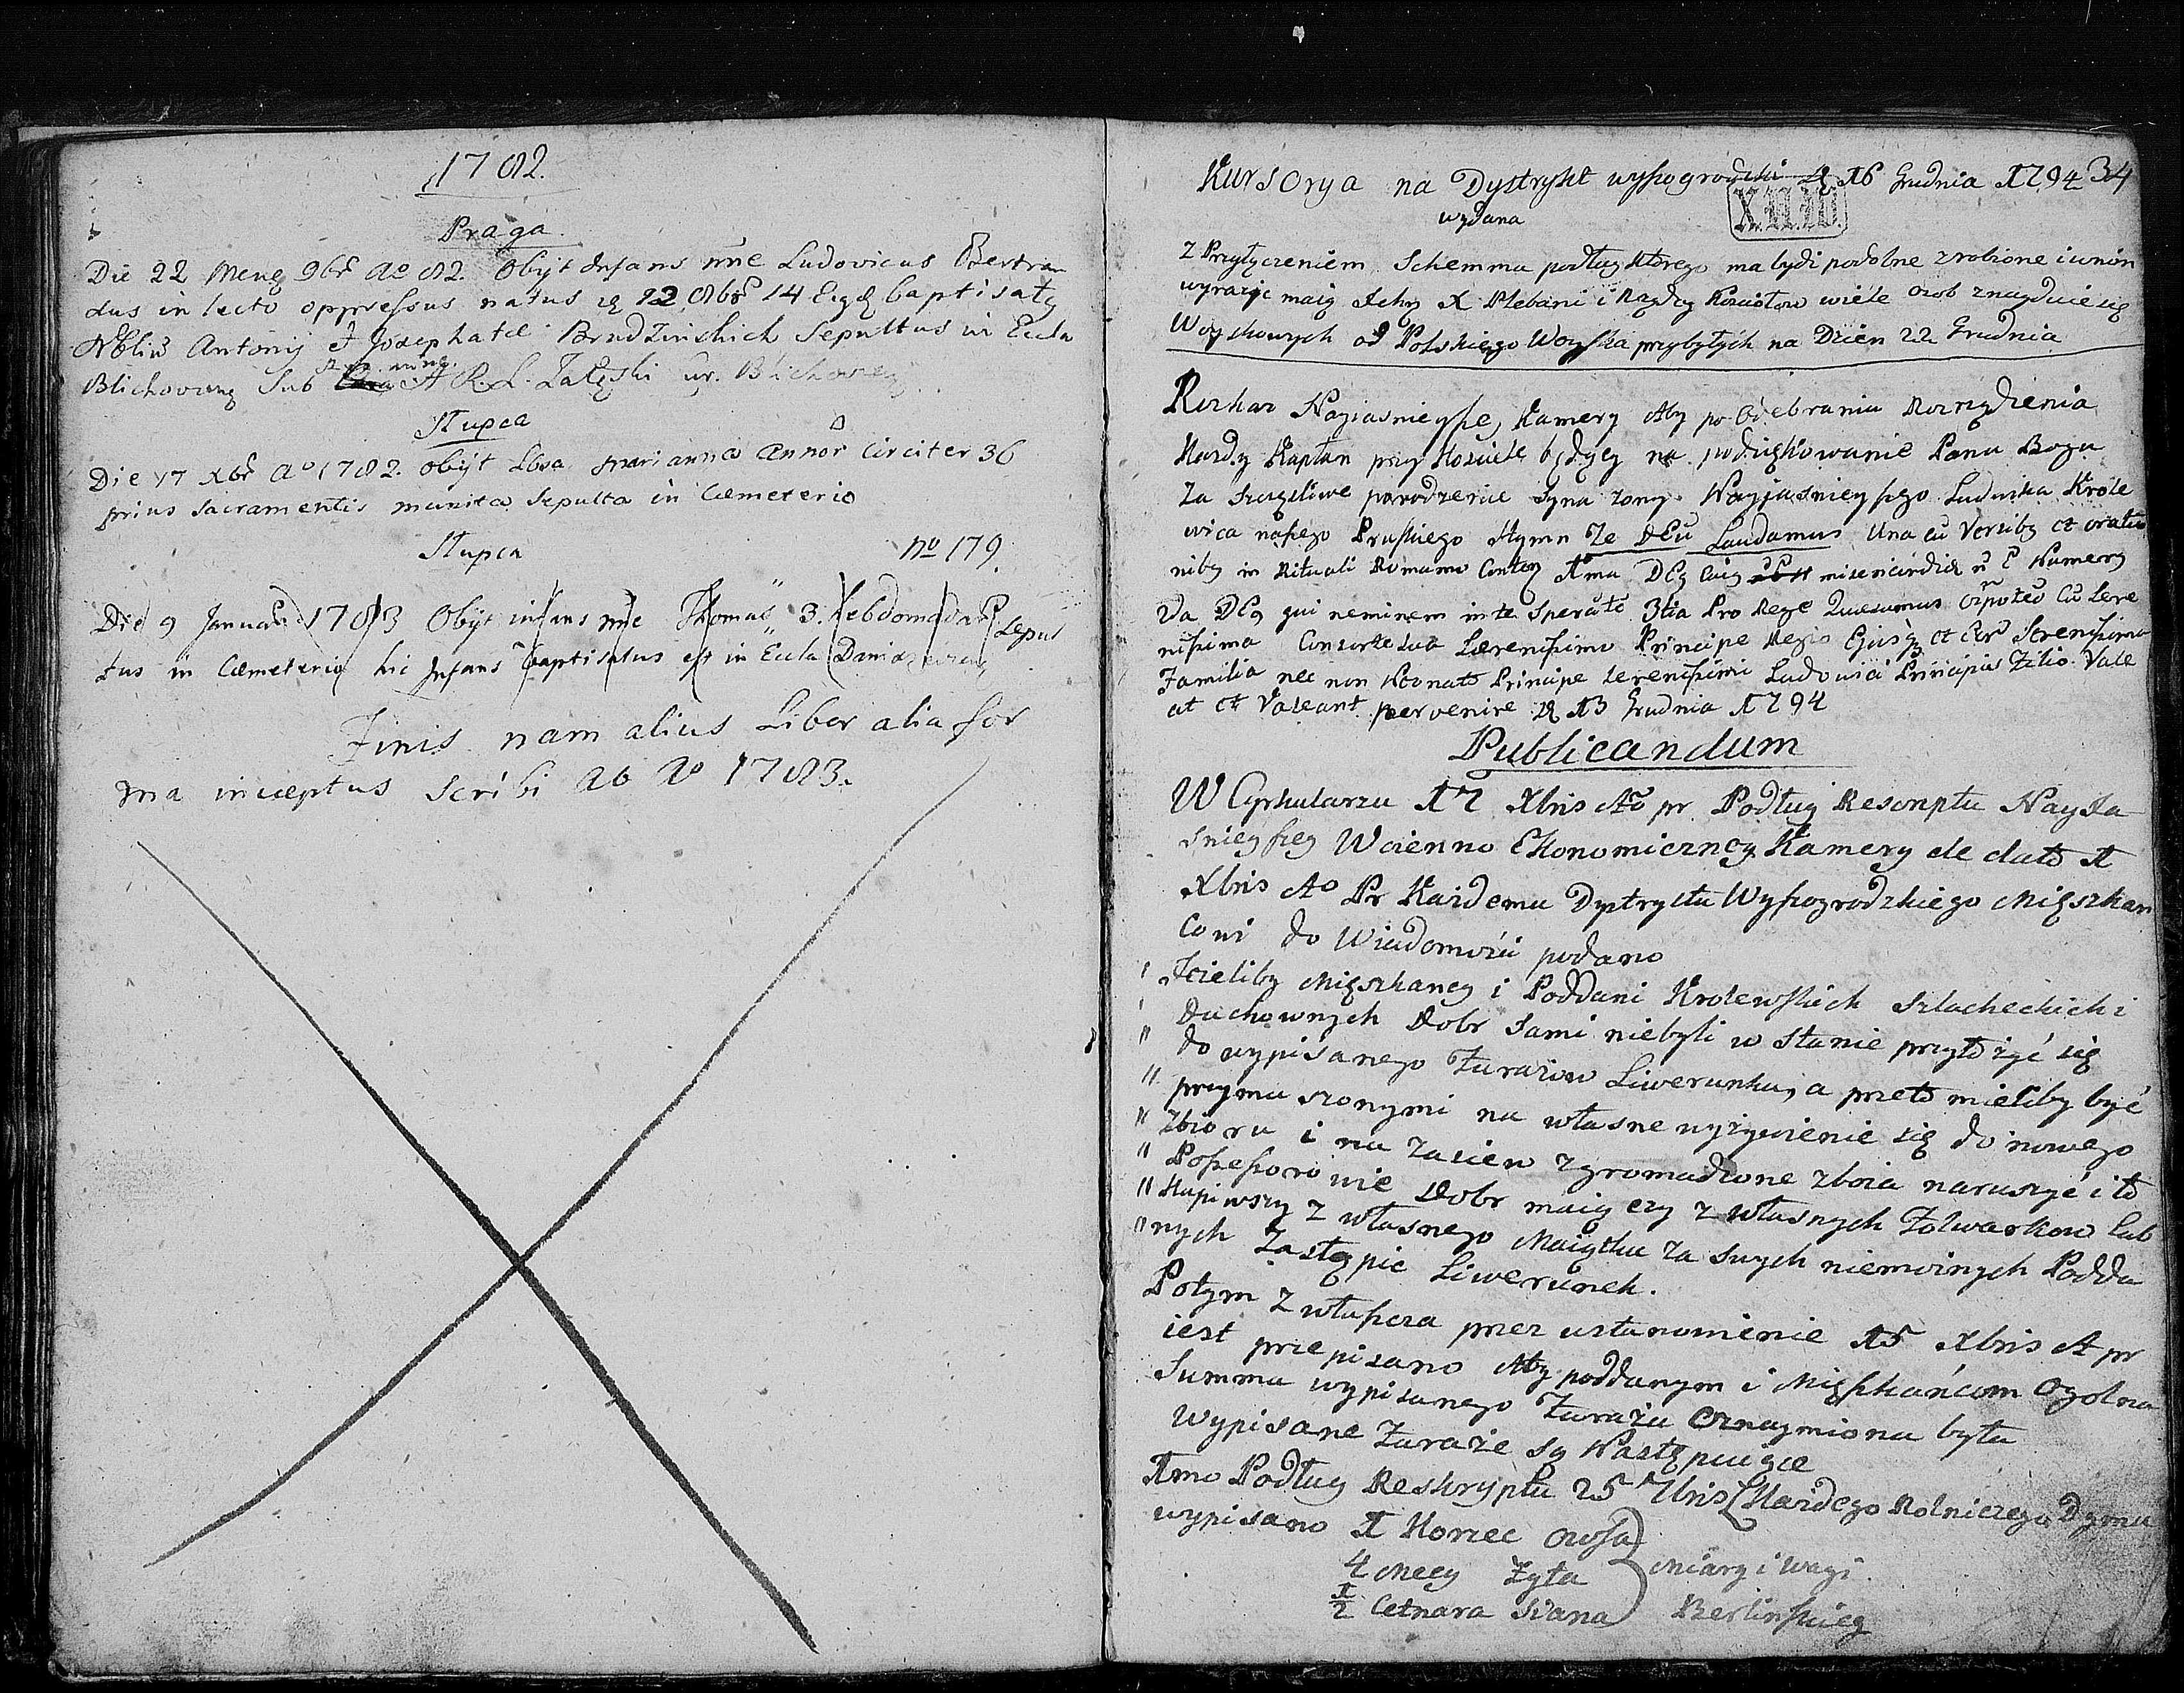 1782.
Praga.
Die 22 Mens 9br Ao 82. Obyt Infans nne Ludovicus Bertran
dus in lecto oppressus natus 22 8br 14 baptisatg
Antonij et Josephatae Brudzinskich Sepultus in Eccla
Sub A R. L. Załęski
Słupca
Die 17 Xbr Ao 1782. obyt Lbsa Marianna Annor circiter 36
prius Sacramentis munita Sepulta in Caemeterio
Słupca no 179.
Die 9 Januar 1783 Obyt infans nne Thomas 3. hebdomadar Sepul
tus in Caemeterio hic Infans baptisatus est in Eccla
Finis nam alius Liber alia for
ma inceptus scribi ab Ao 1783.
Kursorya na Dystrykt wyszogrodzki d 16 Grudnia 1794 34
wydana
z Przyłączeniem Schemma podług którego ma bydź podobne zrobione i w nim
wyrazic maią Ichmć X Plebani i Rządcy Kosciołow wiele osob znayduie się
Woyskowych od Polskiego Woyska przybyłych na Dzien 22 Grudnia
Rozkaz Nayiasnieyszey Kamery Aby po Odebraniu Rozrządzenia
Kazdy Kapłan przy Kosciele będący na podziękowanie Panu Bogu
za szczęsliwe porodzenie Syna zony Nayjasnieyszego Ludwika Krole
wica naszego Pruskiego Hymn Te DEu Laudamus Una cu Versibg et oratio
nibg in Rituali Romano 1ma DEg Cuig misericordiae Numerg
2da DEg qui neminem in te Sperate 3tia Pro Rege Quaesumus cu Sere
nissima Consorte sua Serenissimo Principe Regio Ejusq et Serenissima
Familia nec non Neonato Principe serenissimi Ludovici Principis Filio Vale
at et Valeant pervenire d 13 Grudnia 1794
Publicandum
W Cyrkularzu 17 Xbris Ao pr Podług Rescriptu Nayia
snieyszey Woienno Ekonomiczney Kamery de dato 1
Xbris Ao Pr Kaidemu Dystryktu Wyszogrodzkiego Miąszkan
cowi do Wiadomości podano
" Jezeliby Miąszkancy i Poddani Krolewskich Szlacheckich i
" Duchownych Dobr Sami niebyli w Stanie przyłożyć się
" do wypisanego Furażow Liwerunku, a przeto mieliby być
" przymuszonymi na własne wyżywienie się do nowego
" Zbioru i na zasiew zgromadzone zboia naruszyć i to
" Possessorowie Dobr maią czy z własnych Folwarkow lub
" kupiwszy z własnego Maiątku za swych niemoinych Podda
" nych zastąpic Liwerunek.
Potym zwłaszcza przez ustanowienie 15 Xbris A pr
iest przepisano Aby poddanym i Miąszkańcom Ogolna
Summa wypisanego Furażu oznaymiona była
Wypisane Furaże są Następuiące
1mo Podług Reskryptu 25 Kaidego Rolniczego Dymu
wypisano 1 Korzec Owsa
4 Mecy Żyta Miary i Wagi
1/2 Cetnara Siana Berlinskiey